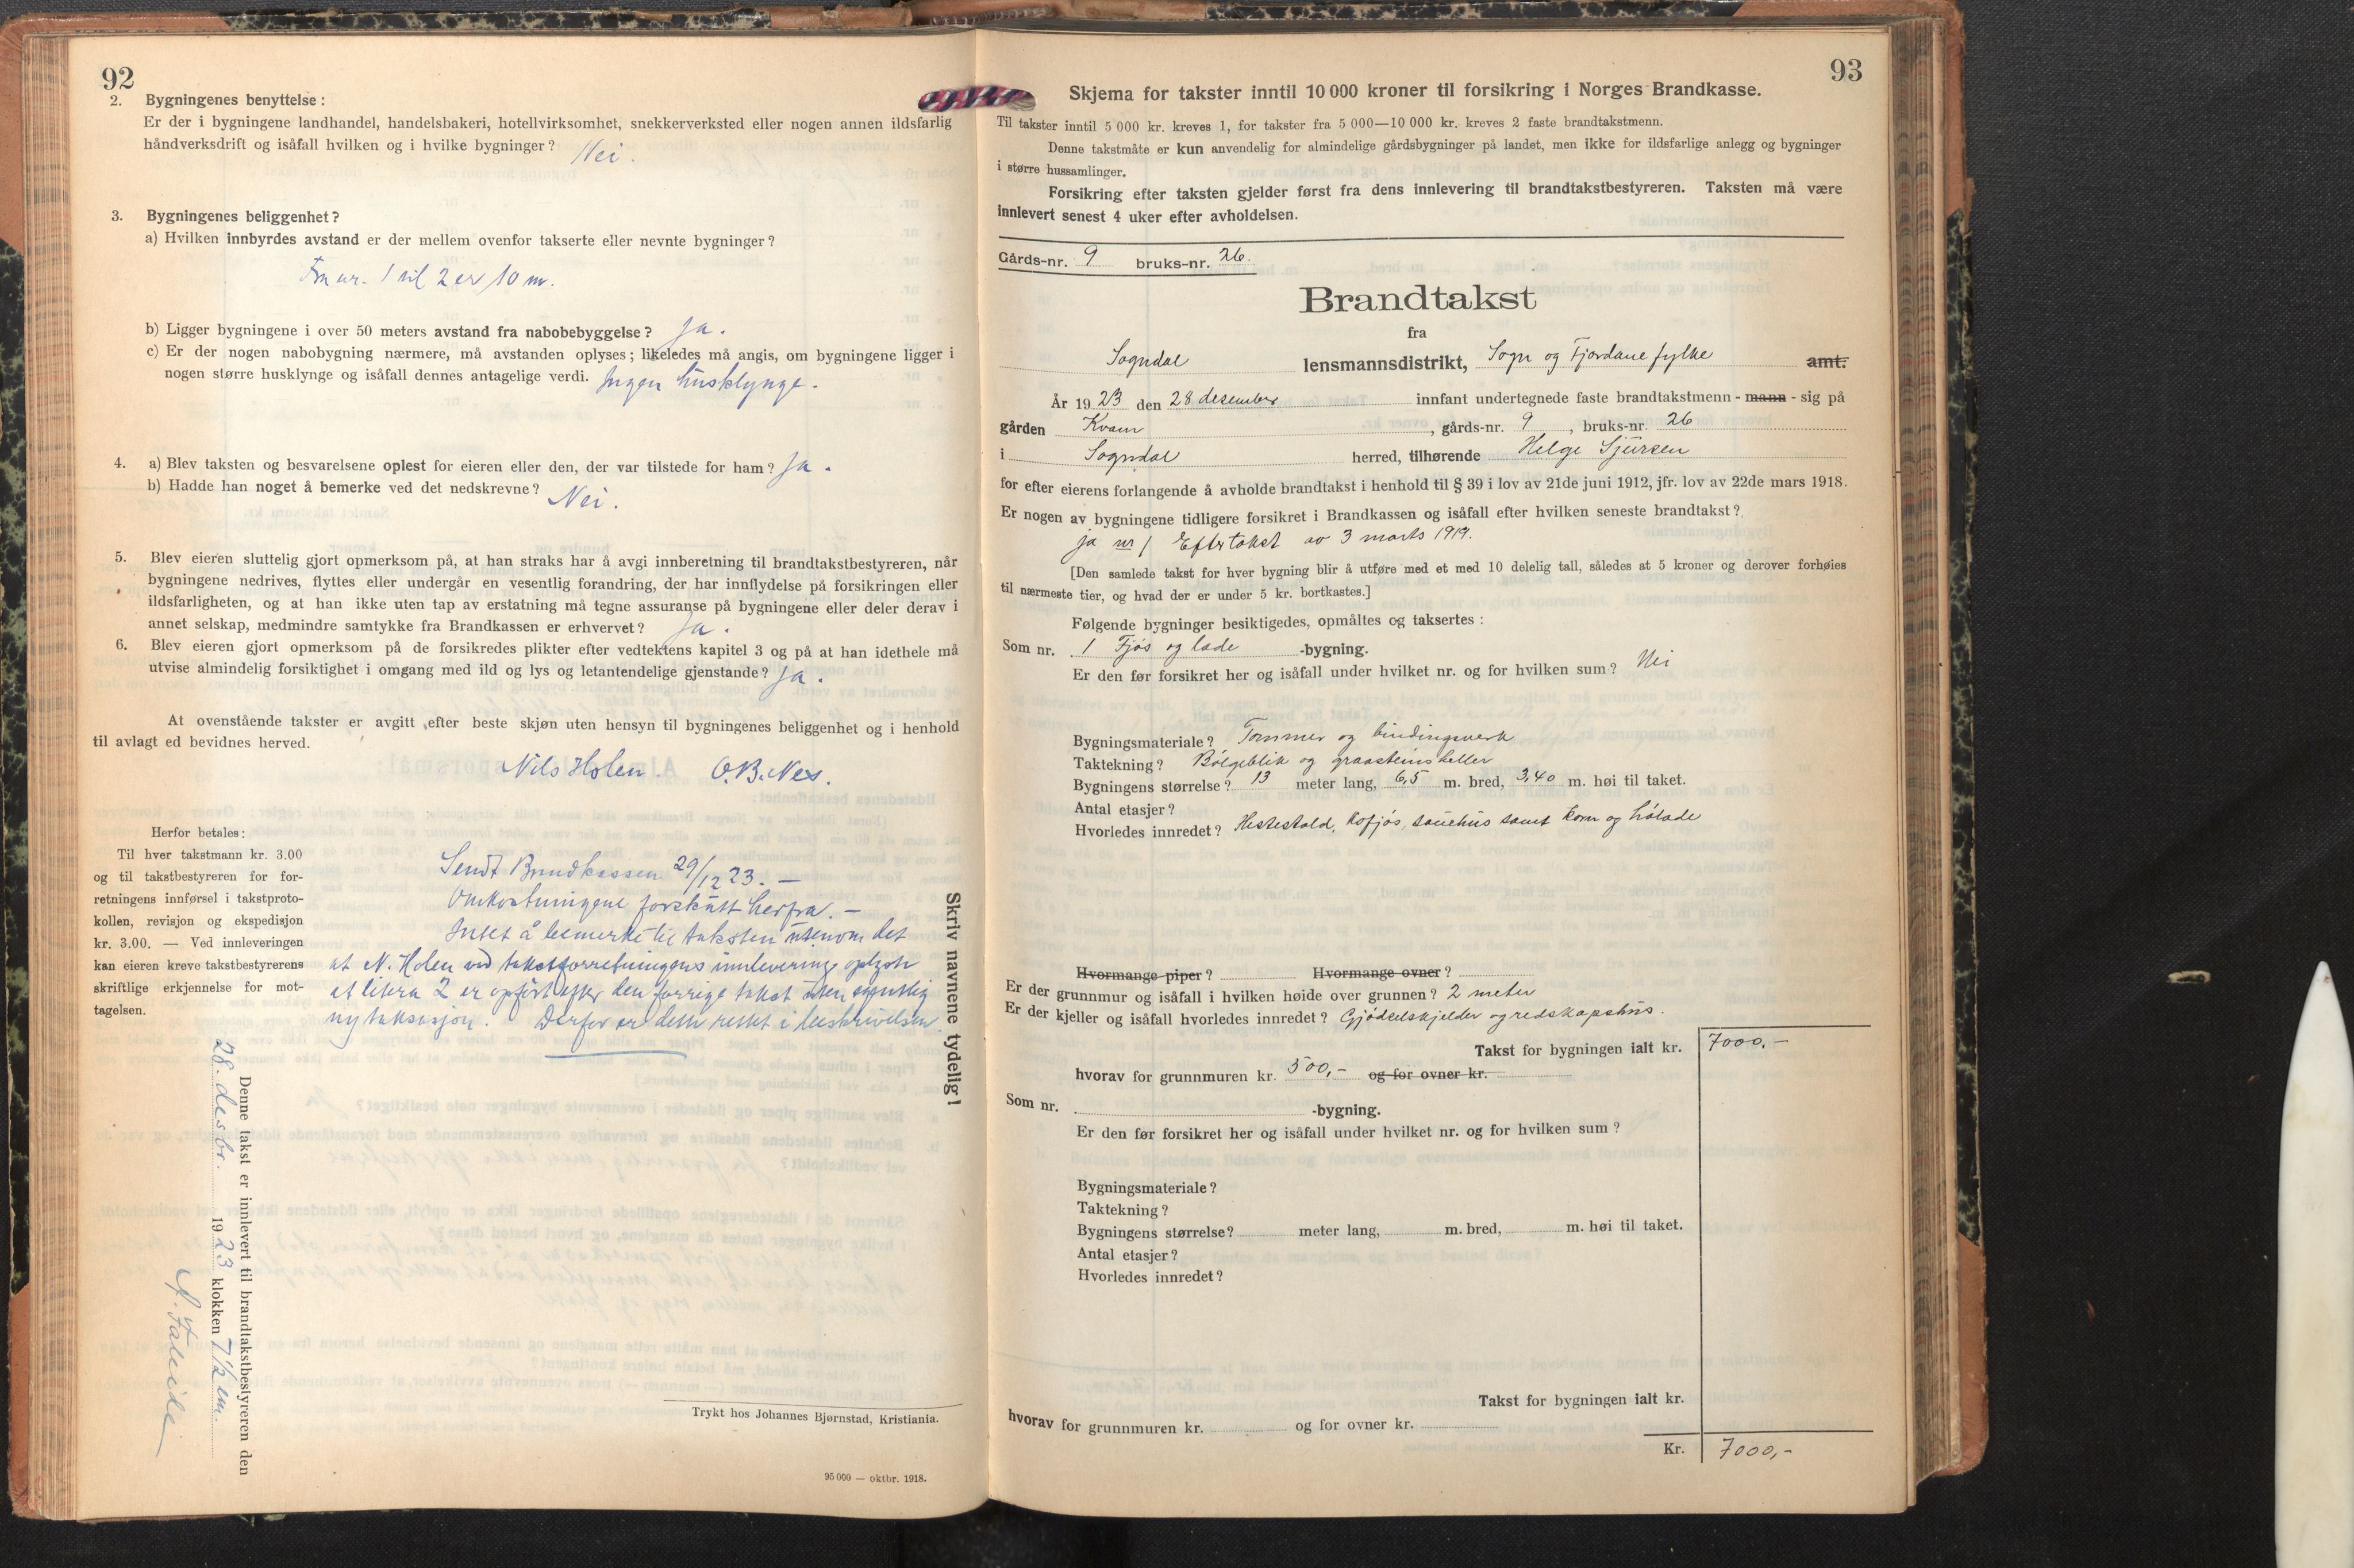 92
2. Bygningenes benyttelse:
Er der i bygningene landhandel, handelsbakeri, hotellvirksomhet, snekkerverksted eller nogen annen ildsfarlig
håndverksdrift og isåfall hvilken og i hvilke bygninger? Nei.
3. Bygningenes beliggenhet?
a) Hvilken innbyrdes avstand er der mellem ovenfor takserte eller nevnte bygninger?
Fra nr. 1 til 2 er 10 m.
b) Ligger bygningene i over 50 meters avstand fra nabobebyggelse? Ja.
c) Er der nogen nabobygning nærmere, må avstanden oplyses; likeledes må angis, om bygningene ligger i
nogen større husklynge og isåfall dennes antagelige verdi. Ingen husklynge.
4. a) Blev taksten og besvarelsene oplest for eieren eller den, der var tilstede for ham? Ja.
b) Hadde han noget å bemerke ved det nedskrevne? Nei.
5. Blev eieren sluttelig gjort opmerksom på, at han straks har å avgi innberetning til brandtakstbestyreren, når
bygningene nedrives, flyttes eller undergår en vesentlig forandring, der har innflydelse på forsikringen eller
ildsfarligheten, og at han ikke uten tap av erstatning må tegne assuranse på bygningene eller deler derav i
annet selskap, medmindre samtykke fra Brandkassen er erhvervet? Ja.
6. Blev eieren gjort opmerksom på de forsikredes plikter efter vedtektens kapitel 3 og på at han idethele må
utvise almindelig forsiktighet i omgang med ild og lys og letantendelige gjenstande? Ja.
At ovenstående takster er avgitt efter beste skjøn uten hensyn til bygningenes beliggenhet og i henhold
til avlagt ed bevidnes herved.
Nils Holen. O.B. Nes.
Herfor betales:
Til hver takstmann kr. 3.00
og til takstbestyreren for for-
retningens innførsel i takstproto-
kollen, revisjon og ekspedisjon
kr. 3.00. — Ved innleveringen
kan eieren kreve takstbestyrerens
skriftlige erkjennelse for mot-
tagelsen.
Sendt Brandkassen 29/12 23. —
Omkostningene forskutt herfra. —
Intet å bemerke til taksten utenom det
at N. Holen ved takstforretningens innlevering oplyste
at litera 2 er opført efter den forrige takst uten egentlig
ny taksasjon. Derfor er dette rettet i beskrivelsen.
Skriv navnene tydelig!
Denne takst er innlevert til brandtakstbestyreren den
28. desbr. 1923 klokken 7 1/2 em.
Trykt hos Johannes Bjørnstad, Kristiania.
95 000 — oktbr. 1918.
93
Skjema for takster inntil 10 000 kroner til forsikring i Norges Brandkasse.
Til takster inntil 5 000 kr. kreves 1, for takster fra 5 000—10 000 kr. kreves 2 faste brandtakstmenn.
Denne takstmåte er kun anvendelig for almindelige gårdsbygninger på landet, men ikke for ildsfarlige anlegg og bygninger
i større hussamlinger.
Forsikring efter taksten gjelder først fra dens innlevering til brandtakstbestyreren. Taksten må være
innlevert senest 4 uker efter avholdelsen.
Gårds-nr. 9 bruks-nr. 26.
Brandtakst
fra
Sogndal lensmannsdistrikt, Sogn og Fjordane fylke amt.
År 1923 den 28 desember innfant undertegnede faste brandtakstmenn - mann - sig på
gården Kvam, gårds-nr. 9, bruks-nr. 26
i Sogndal herred, tilhørende Helge Sjursen
for efter eierens forlangende å avholde brandtakst i henhold til § 39 i lov av 21de juni 1912, jfr. lov av 22de mars 1918.
Er nogen av bygningene tidligere forsikret i Brandkassen og isåfall efter hvilken seneste brandtakst?
ja nr 1 Eftertakst av 3 marts 1919.
[Den samlede takst for hver bygning blir å utføre med et med 10 delelig tall, således at 5 kroner og derover forhøies
til nærmeste tier, og hvad der er under 5 kr. bortkastes.]
Følgende bygninger besiktigedes, opmåltes og taksertes:
Som nr. 1 Fjøs og lade -bygning.
Er den før forsikret her og isåfall under hvilket nr. og for hvilken sum? Nei
Bygningsmateriale? Tømmer og bindingsverk
Taktekning? Bølgeblik og graasteinsheller
Bygningens størrelse? 13 meter lang, 6,5 m. bred, 3,40 m. høi til taket.
Antal etasjer?
Hvorledes innredet? Hestestald, kofjøs, sauehus samt korn og hølade
Hvormange piper? Hvormange ovner?
Er der grunnmur og isåfall i hvilken høide over grunnen? 2 meter
Er der kjeller og isåfall hvorledes innredet? Gjødselskjelder og redskapshus.
Takst for bygningen ialt kr. 7000,-
hvorav for grunnmuren kr. 500,- og for ovner kr.
Som nr. -bygning.
Er den før forsikret her og isåfall under hvilket nr. og for hvilken sum?
Bygningsmateriale?
Taktekning?
Bygningens størrelse? meter lang, m. bred, m. høi til taket.
Antal etasjer?
Hvorledes innredet?
Takst for bygningen ialt kr.
hvorav for grunnmuren kr. og for ovner kr.
Kr. 7000,-